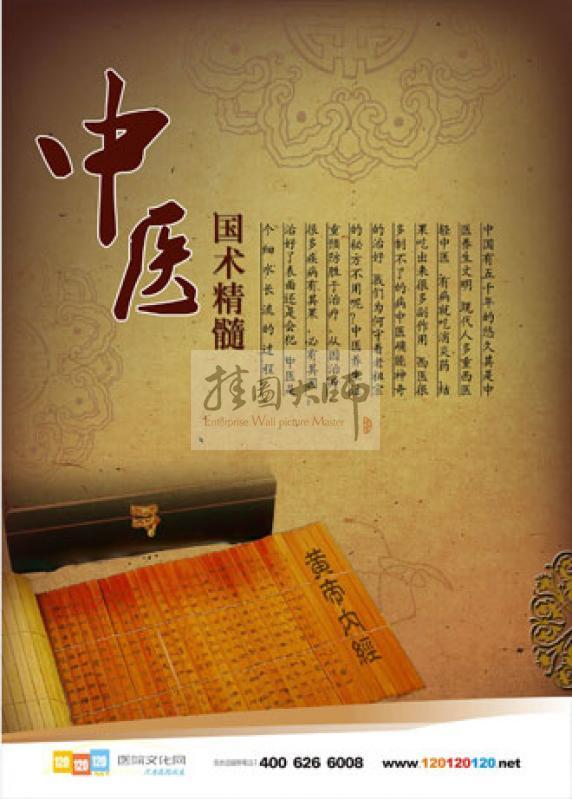 中医
国术精髓
中国有五千年的悠久其是中
医养生文明 现代人多重西医
轻中医 有病就吃消炎药 结
果吃出来很多副作用 西医很
多制不了的病中医确能神奇
的治好 我们为何守着老祖宗
的秘方不用呢?中医养生
重预防胜于治疗 从因治
很多疾病有其果 必有其因
治好了表面还是会犯 中医是
个细水长流的过程
挂图大师
Enterprise Wall picture Master
黄帝内經
120 120 120 .NET 医院文化网
400 626 6008
www.120120120.net